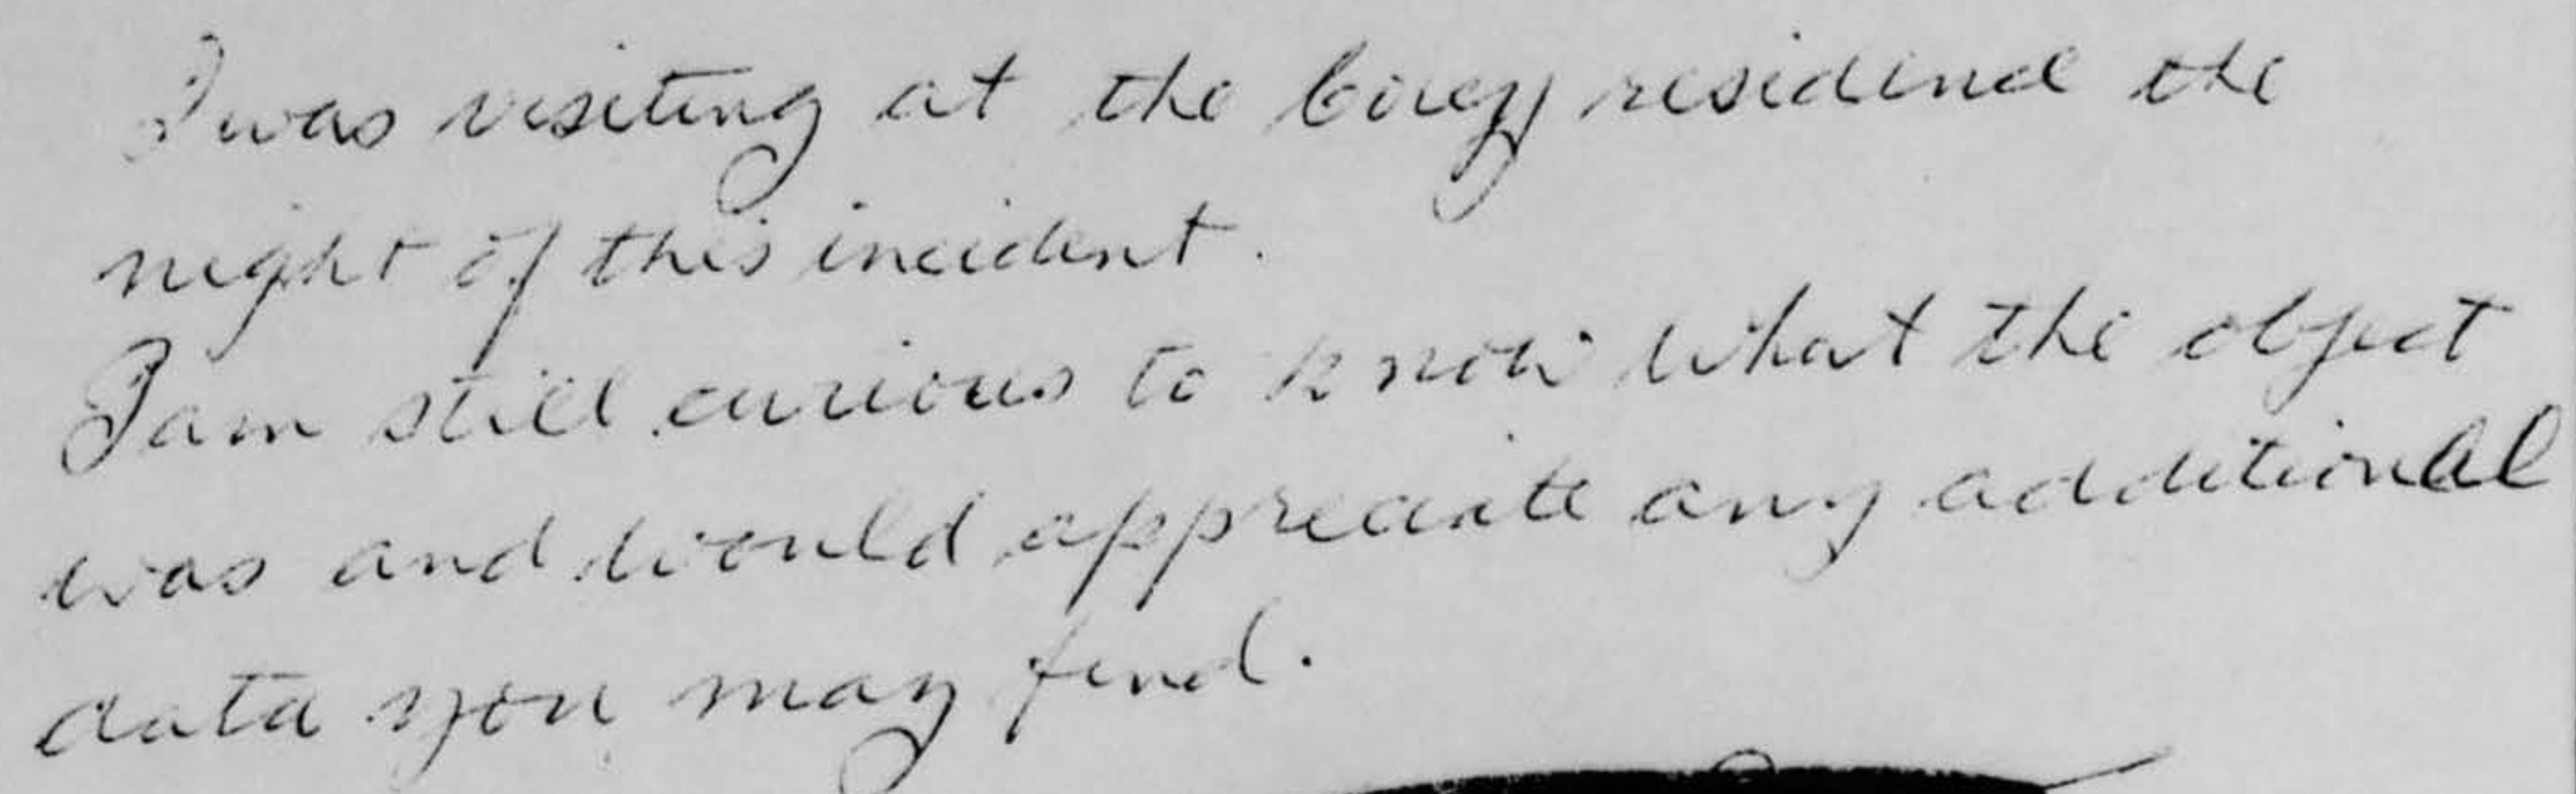 I was visiting at the residence the
night of this incident.
I am still curious to know what the object
was and would appreciate any additional
data you may find.